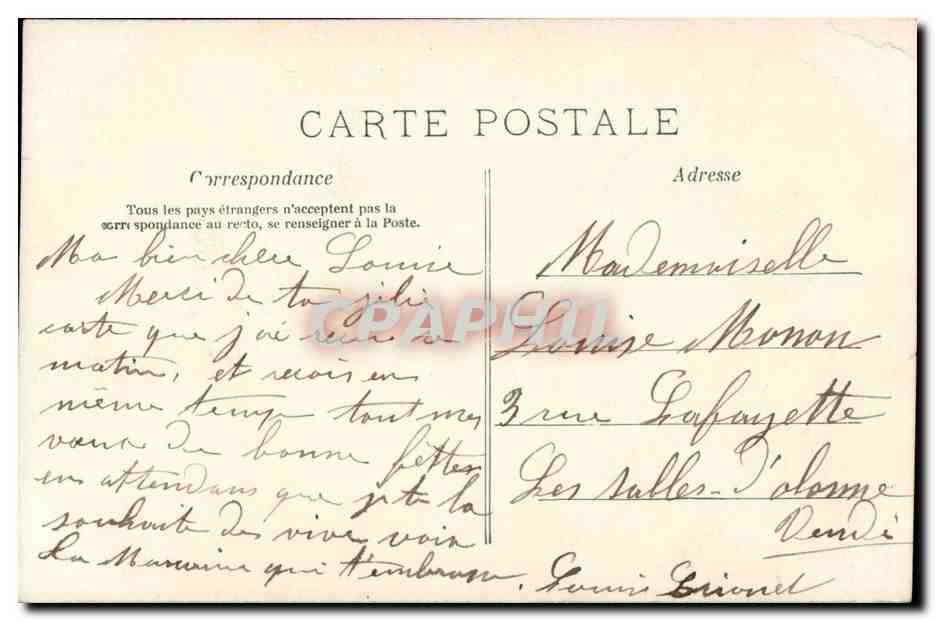 CARTE POSTALE
Correspondance
Tous les pays étrangers n'acceptent pas la
correspondance au recto, se renseigner à la Poste.
Ma bien chere Louise
Merci de ta jolie
carte que j'ai reçue ce
matin, et reçois en
même temps tout mes
vœux de bonne fêttes
en attendans que je te la
souhaite des vive voix
La Marraine qui t'embrasse.
Louise
Adresse
Mademoiselle
Louise Monon
3 rue Lafayette
Les salles-d'olonne
Vendé
CPAPHIL